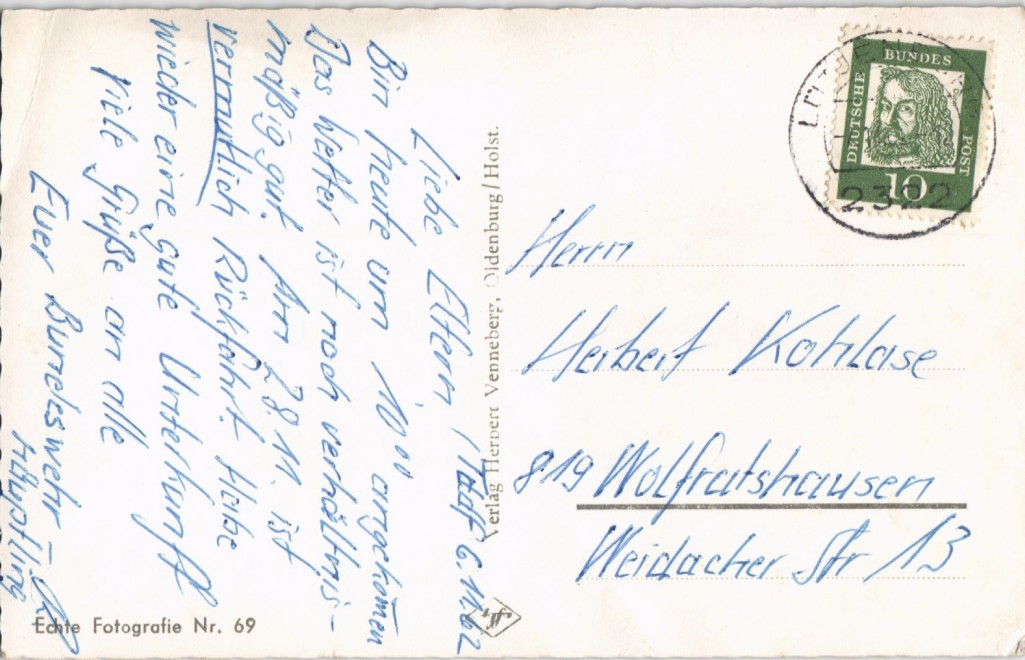 Liebe Eltern, 6.11.62
Bin heute um 10 00 angekom̄en
Das Wetter ist noch verhältnis-
mäßig gut. Am 28.11. ist
vermutlich Rückfahrt. Habe
wieder eine gute Unterkunft
Viele Grüße an alle
Euer Bundeswehr-
häuptling
Echte Fotografie Nr. 69
Verlag Herbert Venneberg, Oldenburg/Holst.
DEUTSCHE BUNDES POST
10
2322
Herrn
Herbert Kohlase
819 Wolfratshausen
Weidacher Str 13